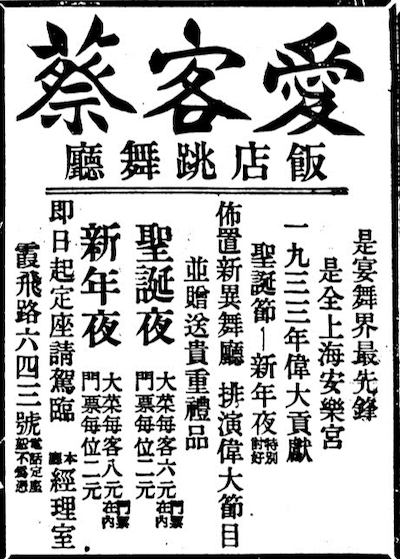 愛客蔡
飯店跳舞廳
是宴舞界最先鋒
是全上海安樂宮
一九三三年偉大貢獻
聖誕節—新年夜 特別討好
佈置新異舞廳 排演偉大節目
並贈送貴重禮品
聖誕夜
大菜每客六元 門票在內
門票每位二元
新年夜
大菜每客八元 門票在內
門票每位二元
即日起定座請駕臨本廳經理室
霞飛路六四三號
電話定座
不爲憑